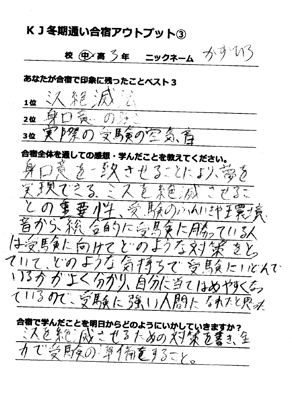 KJ冬期通い合宿アウトプット③
校 中 高 3年 ニックネーム かずひろ
あなたが合宿で印象に残ったことベスト3
1位 ミス絶滅法
2位 身口意の
3位 実際の受験の空気、音
合宿全体を通しての感想・学んだことを教えてください。
身口意を一致させることにより、夢を
実現できる、ミスを絶滅させるこ
との重要性、受験のふんいきや環境、
音から、総合的に受験に勝っている人
は受験に向けてどのような対策をと
っていて、どのような気持ちで受験にいどんで
いるかがよく分かり、自分に当てはめやすくなっ
ているので、受験に強い人間になれたと思った。
合宿で学んだことを明日からどのようにいかしていきますか?
ミスを絶滅させるための対策を書き、全
力で受験の準備をすること。